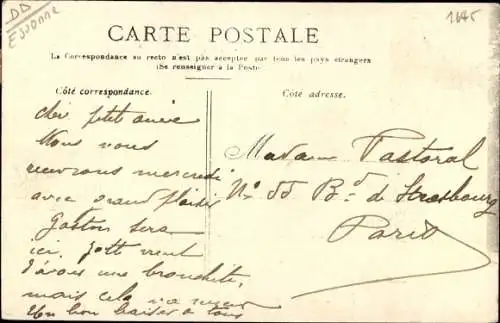 DD
Essonne
1645
CARTE POSTALE
La Correspondance au recto n'est pas acceptée par tous les pays étrangers
(Se renseigner à la Poste)
Côté correspondance.
Côté adresse.
cher petit
Nous vous
recevrons mercredi
avec grand plaisir
Gaston sera
ici,
J'avais une bronchite,
mais cela va mieux
Un bon baiser à tous
Madame Pastoral
No 55 Bd de Strasbourg
Paris